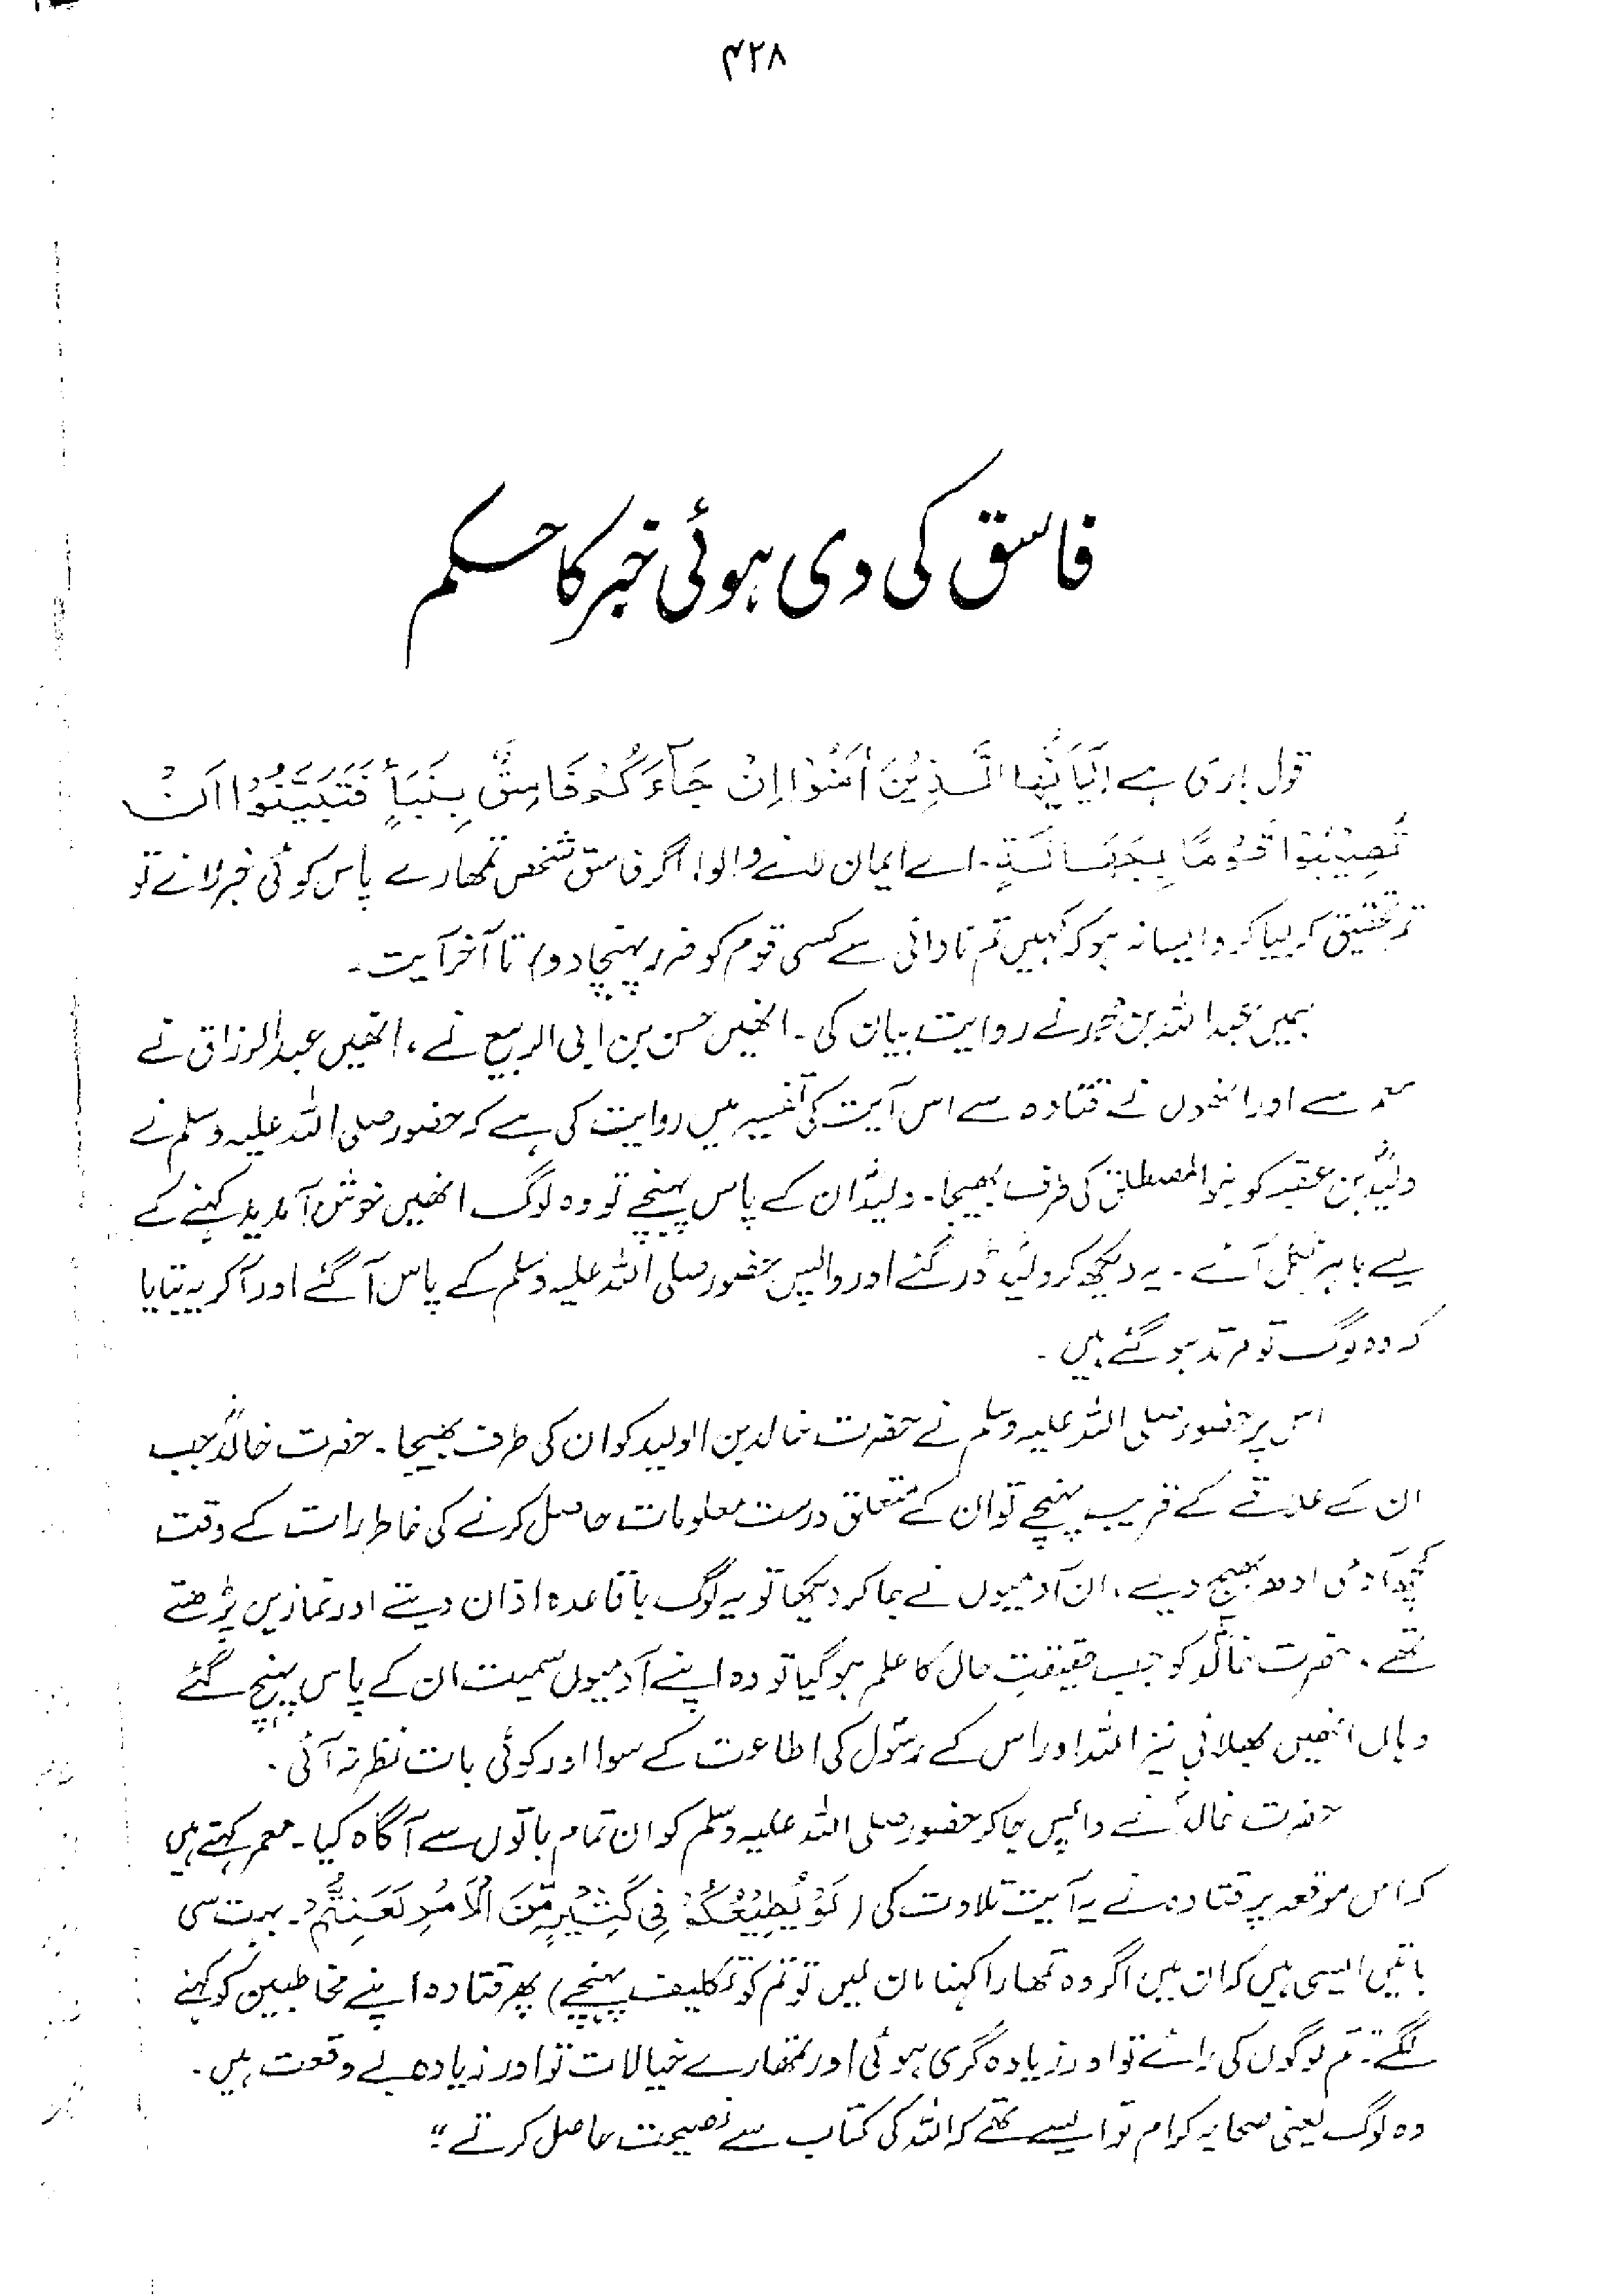 ۴۲۸
فاسق کی دی ہوئی خبر کا حکم
قول باری ہے (یَاَیُّهَا الَّذِیْنَ اٰمَنُوْا اِنْ جَآءَکُمْ فَاسِقٌ بِنَبَأٍ فَتَبَیَّنُوْا اَنْ
تُصِیْبُوْا قَوْمًا بِجَهَالَةٍ۔ اے ایمان لانے والو! اگر فاسق شخص تمھارے پاس کوئی خبر لائے تو
تم تحقیق کر لیا کرو ایسا نہ ہو کہ کہیں تم نادانی سے کسی قوم کو ضرر پہنچا دو) تا آخر آیت۔
ہمیں عبداللہ بن محمد نے روایت بیان کی۔ انھیں حسن بن ابی الربیع نے، انھیں عبدالرزاق نے
معمر سے اور انھوں نے قتادہ سے اس آیت کی تفسیر میں روایت کی ہے کہ حضور صلی اللہ علیہ وسلم نے
ولیدؓ بن عقبہ کو بنو المصطلق کی طرف بھیجا۔ ولیدؓ ان کے پاس پہنچے تو وہ لوگ انھیں خوش آمدید کہنے کے
لیے باہر نکل آئے۔ یہ دیکھ کر ولیدؓ ڈر گئے اور واپس حضور صلی اللہ علیہ وسلم کے پاس آگئے اور آکر یہ بتایا
کہ وہ لوگ تو مرتد ہو گئے ہیں۔
اس پر حضور صلی اللہ علیہ وسلم نے حضرت خالد بن الولید کو ان کی طرف بھیجا۔ حضرت خالدؓ جب
ان کے علاقے کے قریب پہنچے تو ان کے متعلق درست معلومات حاصل کرنے کی خاطر رات کے وقت
کچھ آدمی ادھر بھیج دیے، ان آدمیوں نے جا کر دیکھا تو یہ لوگ باقاعدہ اذان دیتے اور نمازیں پڑھتے
تھے۔ حضرت خالدؓ کو جب حقیقتِ حال کا علم ہو گیا تو وہ اپنے آدمیوں سمیت ان کے پاس پہنچ گئے
وہاں انھیں بھلائی نیز اللہ اور اس کے رسولؐ کی اطاعت کے سوا اور کوئی بات نظر نہ آئی۔
حضرت خالدؓ نے واپس جا کر حضور صلی اللہ علیہ وسلم کو ان تمام باتوں سے آگاہ کیا۔ معمر کہتے ہیں
کہ اس موقعہ پر قتادہ نے یہ آیت تلاوت کی (لَوْ یُطِیْعُکُمْ فِیْ کَثِیْرٍ مِّنَ الْاَمْرِ لَعَنِتُّمْ۔ بہت سی
باتیں ایسی ہیں کہ ان میں اگر وہ تمھارا کہنا مان لیں تو تم کو تکلیف پہنچے) پھر قتادہ اپنے مخاطبین کو کہنے
لگے: تم لوگوں کی رائے تو اور زیادہ گری ہوئی اور تمھارے خیالات تو اور زیادہ بے وقعت ہیں۔
وہ لوگ یعنی صحابہ کرام تو ایسے تھے کہ اللہ کی کتاب سے نصیحت حاصل کرتے"